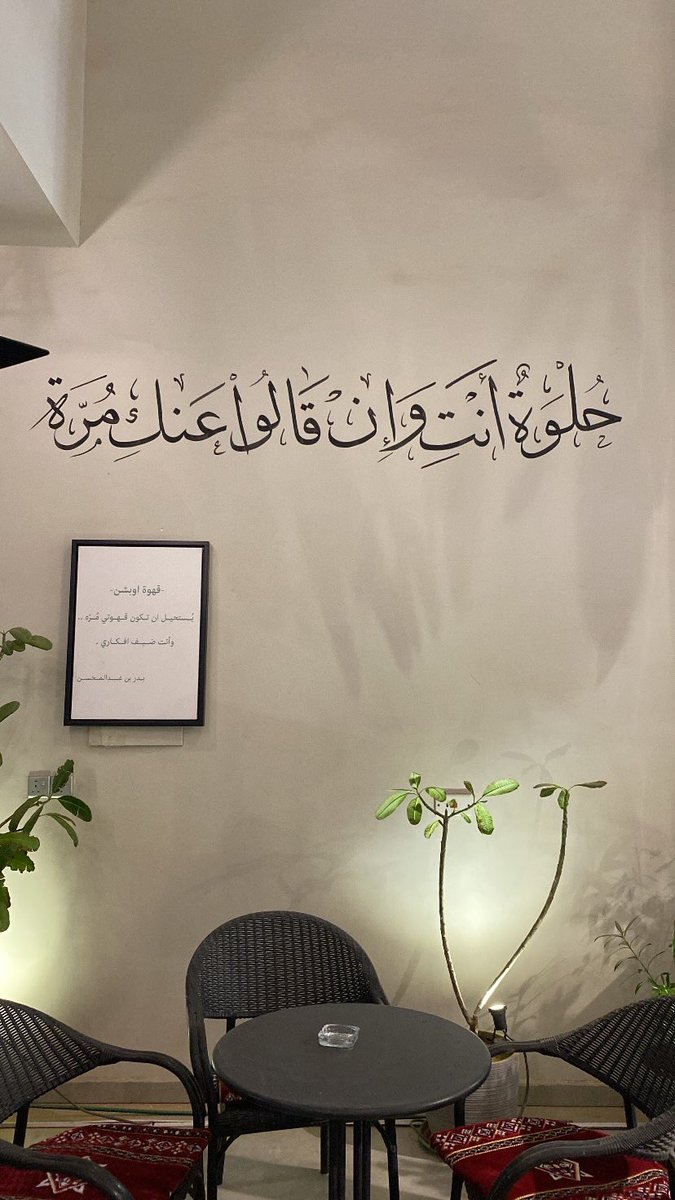 حُلْوَةٌ أَنْتِ وَإِنْ قَالُواْ عَنكِ مُرَّة
-قهوة اوبشن-
يُستحيل ان تكون قهوتي مُرّه ..
وأنت ضيف افكاري .
بدر بن عبدالمحسن